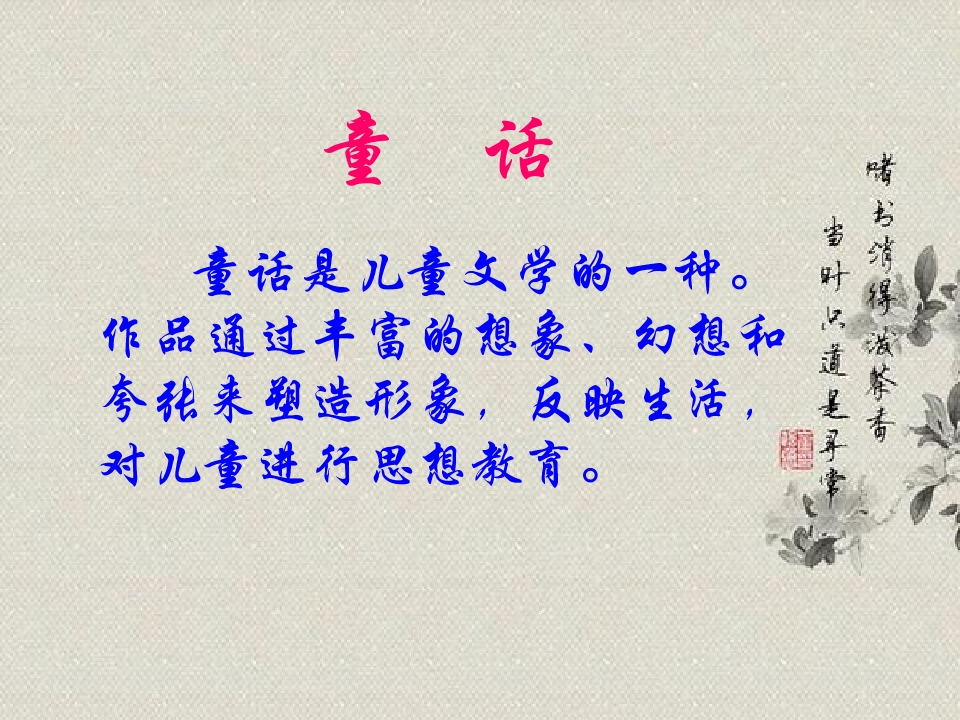 童 话
童话是儿童文学的一种。
作品通过丰富的想象、幻想和
夸张来塑造形象，反映生活，
对儿童进行思想教育。
赌书消得泼茶香
当时只道是寻常